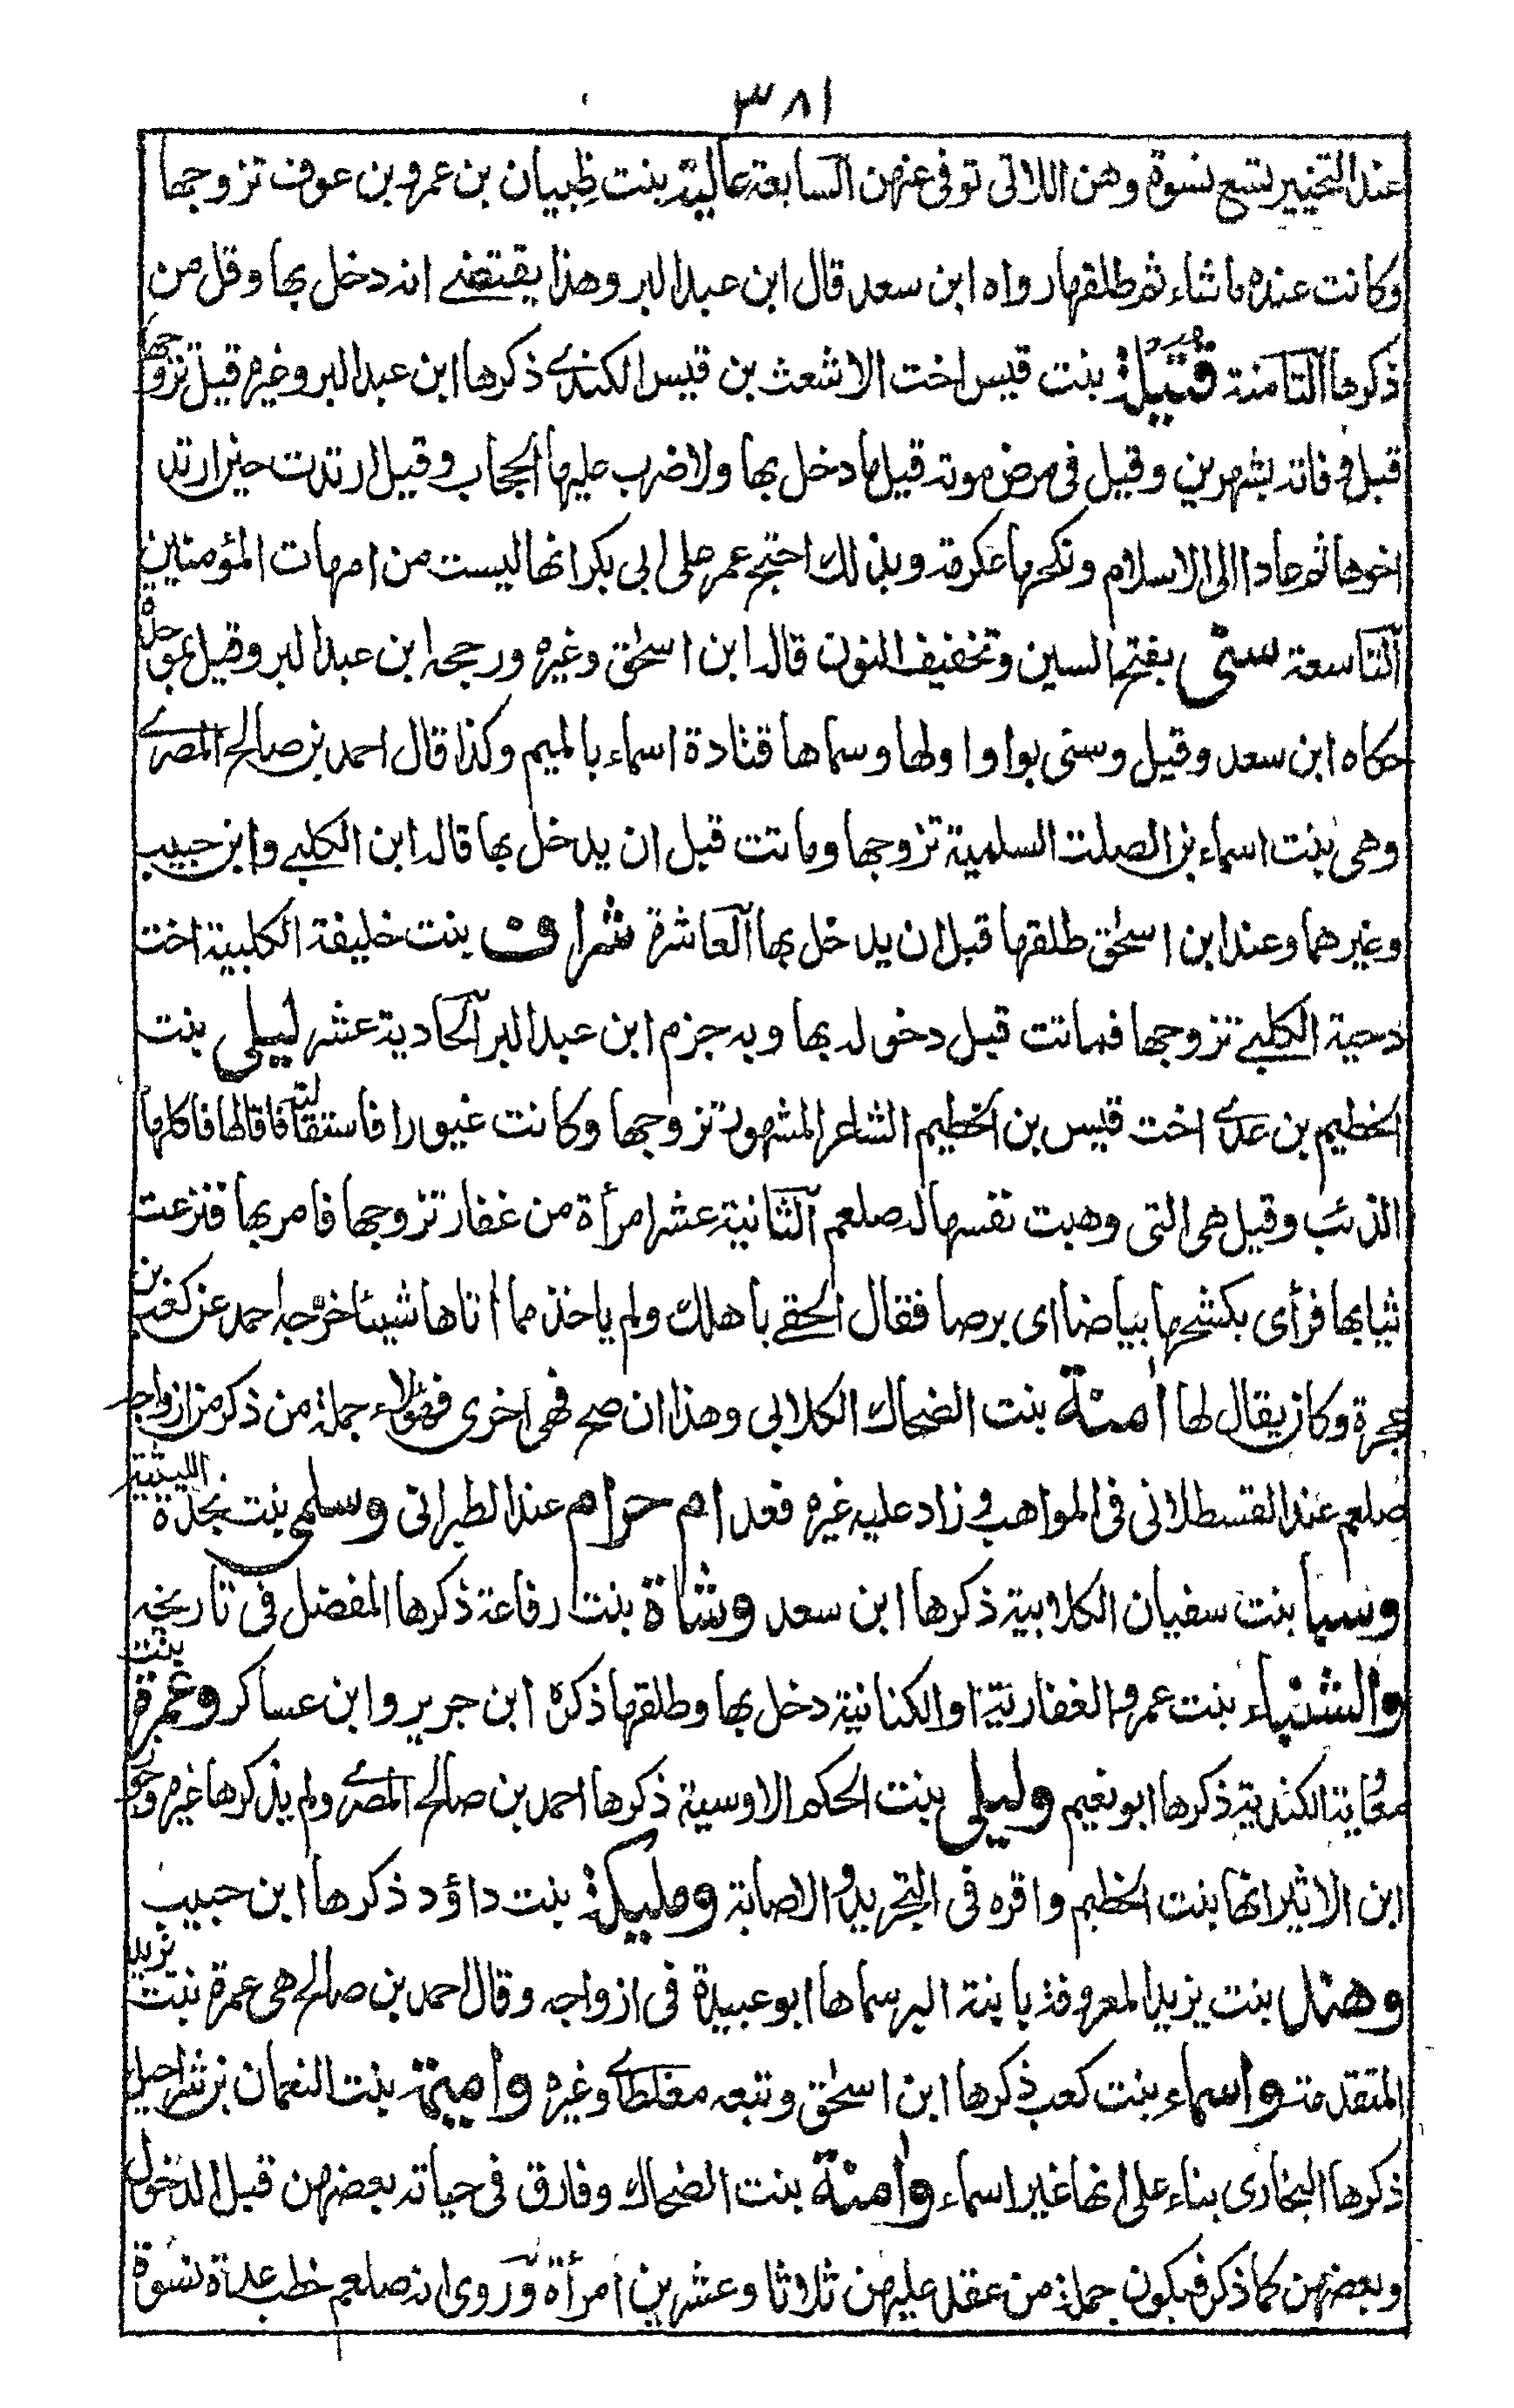 ٣٨١
عند التخيير تسع نسوة وهن اللاتى توفى عنهن السابعة عالية بنت ظبيان بن عمرو بن عوف تزوجها
وكانت عنده ماشاء ثم طلقها رواه ابن سعد قال ابن عبد البر وهذا يقتضے انه دخل بها وقل من
ذكرها الثامنة قتيلة بنت قيس اخت الاشعث بن قيس الكندے ذكرها ابن عبد البر وغيره قيل تزوجها
قبل وفاته بشهرين وقيل فى مرض موته قيل ما دخل بها ولا ضرب عليها الحجاب وقيل ارتدت حين ارتد
اخوها ثم عادا الى الاسلام ونكحها عكرمة وبذلك احتج عمر على ابى بكر انها ليست من امهات المؤمنين
التاسعة سنى بفتح السين وتخفيف النون قاله ابن اسحٰق وغيره ورجحه ابن عبد البر وقيل بموحدة
حكاه ابن سعد وقيل وسنى بواو اولها وسماها قتادة اسماء بالميم وكذا قال احمد بن صالح المصرے
وهى بنت اسماء بن الصلت السلمية تزوجها وماتت قبل ان يدخل بها قاله ابن الكلبے وابن حبيب
وغيرهما وعند ابن اسحٰق طلقها قبل ان يدخل بها العاشرة شراف بنت خليفة الكلبية اخت
دحية الكلبے تزوجها فماتت قبل دخوله بها وبه جزم ابن عبد البر الحادية عشر ليلى بنت
الخطيم بن عدے اخت قيس بن الخطيم الشاعر المشهور تزوجها وكانت غيورا فاستقالته فاقالها فاكلها
الذئب وقيل هى التى وهبت نفسها له صلعم الثانية عشر امرأة من غفار تزوجها فامر بها فنزعت
ثيابها فرأى بكشحها بياضا اى برصا فقال الحقے باهلك ولم ياخذ مما اٰتاها شيئا خرّجه احمد عن كعب بن
عجرة وكان يقال لها اٰمنة بنت الضحاك الكلابى وهذا ان صح فهى اخرى فهؤلاء جملة من ذكر من ازواجه
صلعم عند القسطلانى فى المواهب وزاد عليه غيره فعد ام حرام عند الطبرانى وسلمى بنت نجدة الليثية
وسبا بنت سفيان الكلابية ذكرها ابن سعد وشاة بنت رفاعة ذكرها المفضل فى تاريخه
والشنباء بنت عمرو الغفارية او الكنانية دخل بها وطلقها ذكره ابن جرير وابن عساكر وعمرة بنت
معٰوية الكندية ذكرها ابو نعيم وليلى بنت الحكم الاوسية ذكرها احمد بن صالح المصرے ولم يذكرها غيره وجوز
ابن الاثير انها بنت الخطيم واقره فى التجريد والاصابة ومليكة بنت داؤد ذكرها ابن حبيب
وهند بنت يزيد المعروفة بابنة البر سماها ابو عبيدة فى ازواجه وقال احمد بن صالح هى عمرة بنت يزيد
المتقدمة واسماء بنت كعب ذكرها ابن اسحٰق وتبعه مغلطاے وغيره واميمة بنت النعمان بن شراحيل
ذكرها البخارى بناء على انها غير اسماء واٰمنة بنت الضحاك وفارق فى حياته بعضهن قبل الدخول
وبعضهن كما ذكر فيكون جملة من عقد عليهن ثلاثا وعشرين امرأة وروى انه صلعم خطب عدة نسوة